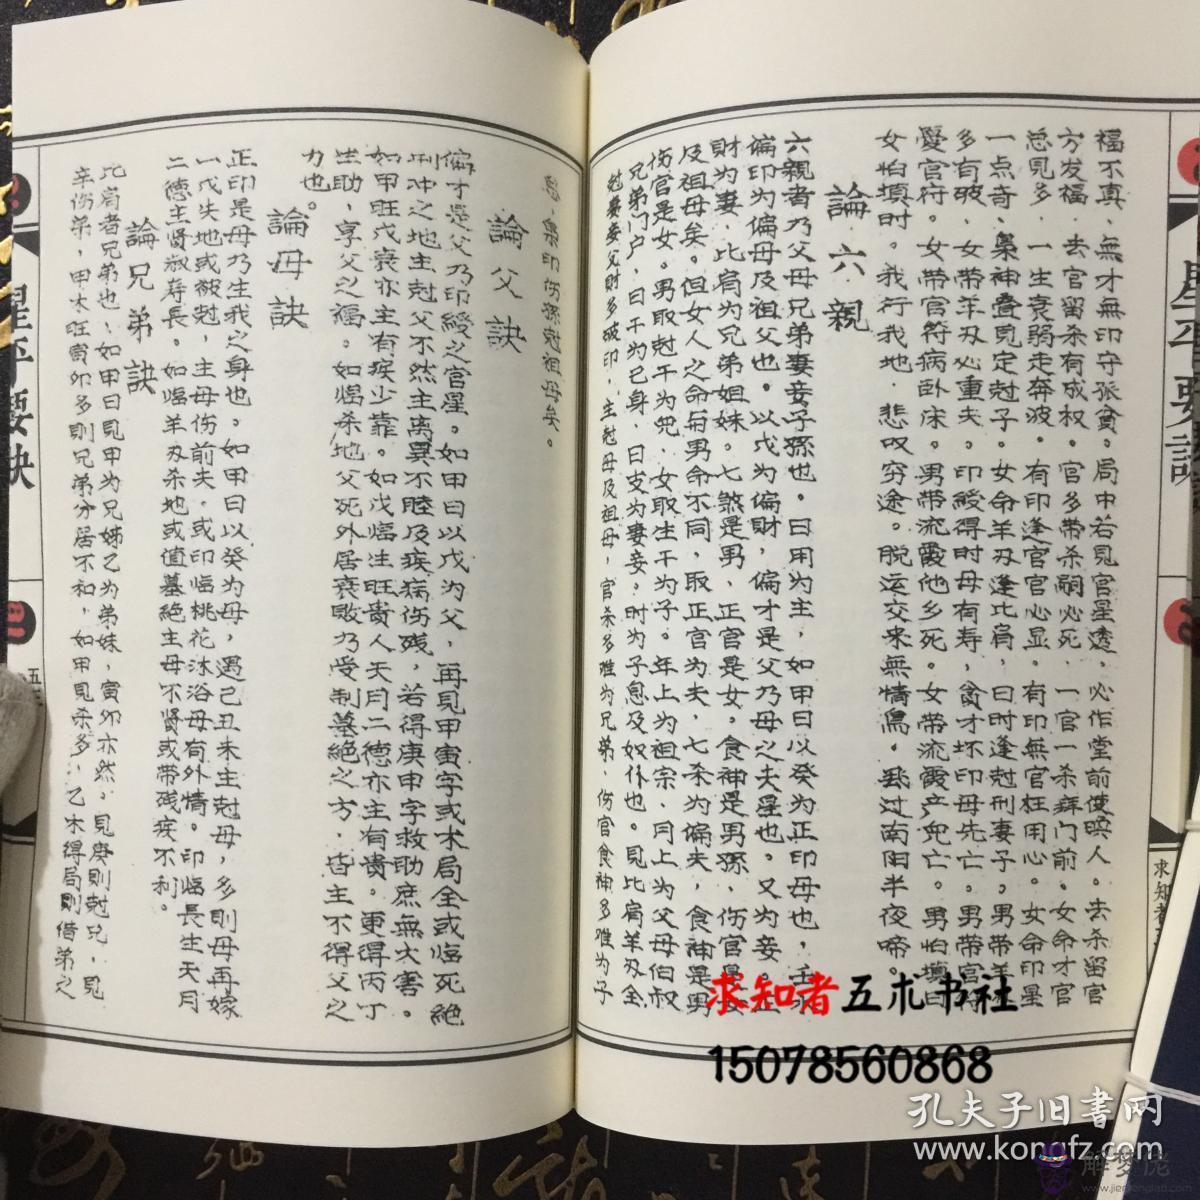 福不真，無才無印守孤貧。局中若見官星透，必作堂前使喚人。去杀留官
方发福，去官留杀有成权。官多带杀嗣必死，一官一杀病门前。女命才官
总見多，一生衰弱走奔波。有印逢官官必显。有印無官枉用心。女命印星
一点奇，梟神叠見定尅子。女命羊刃逢比肩，日时逢尅刑妻子。男带羊刃
多有破，女带羊刃必重夫。印綬得时母有寿，貪才坏印母先亡。男带官符
憂官府。女带官符病卧床。男带流霞他乡死。女带流霞产死亡。男怕填日
女怕填时。我行我地，悲叹穷途。脱运交来無情鳥。飛过南阳半夜啼。
論六親
六親者乃父母兄弟妻妾子孫也。日用为主，如甲日以癸为正印母也，壬水
偏印为偏母及祖父也。以戊为偏財，偏才是父乃母之夫星也。又为妾。正
財为妻，比肩为兄弟姐妹。七煞是男，正官是女。食神是男孫，伤官是女
及祖母矣。但女人之命与男命不同，取正官为夫，七杀为偏夫，食神是男
伤官是女。男取尅干为兜，女取生干为子。年上为祖宗，月上为父母伯叔
兄弟门户，日干为己身，日支为妻妾，时为子息及奴仆也。見比肩羊刃全
尅妻妾父財多破印，主尅母及祖母，官杀多难为兄弟，伤官食神多难为子
息，梟印伤孫尅祖母矣。
論父訣
偏才是父乃印綬之官星。如甲日以戊为父，再見甲寅字或木局全或临死絕
刑冲之地主尅父不然主离異不睦及疾病伤残，若得庚申字救助庶無大害。
如甲旺戊衰亦主有疾少靠。如戊临生旺貴人天月二德亦主有貴。更得丙丁
生助，享父之福。如临杀地父死外居衰敗乃受制墓絕之方，皆主不得父之
力也。
論母訣
正印是母乃生我之身也。如甲日以癸为母，遇己丑未主尅母，多則母再嫁
一戊失地或被尅，主母伤前夫，或印临桃花沐浴母有外情。印临長生天月
二德主賢淑寿長。如临羊刃杀地或值墓絕主母不賢或带残疾不利。
論兄弟訣
比肩者兄弟也，如甲日見甲为兄姊乙为弟妹，寅卯亦然，見庚則尅兄，見
辛伤弟，甲木旺寅卯多則兄弟分居不和，如甲見杀多，乙木得局則借弟之
星平要訣
求知者五术书社
15078560868
孔夫子旧書网
www.kongfz.com
解梦佬
www.jiemenglao.com